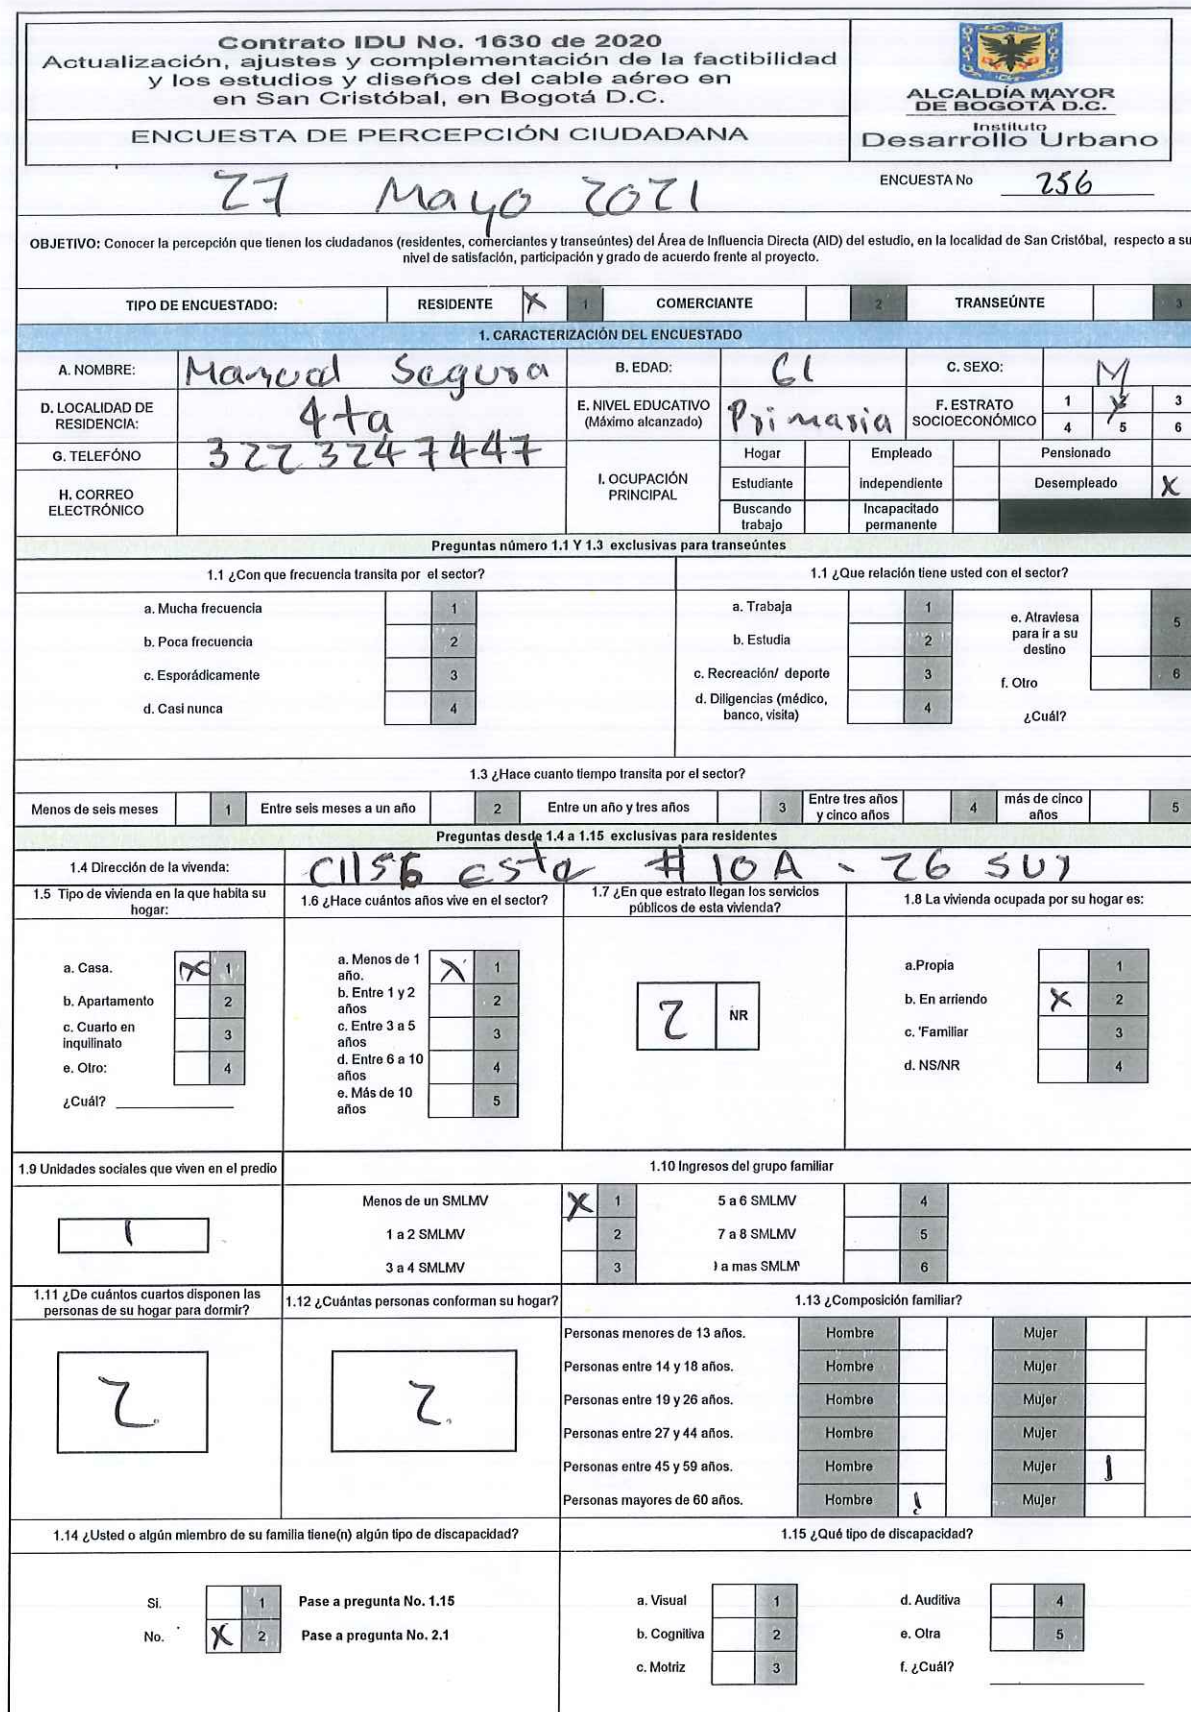 Contrato IDU No. 1630 de 2020
Actualización, ajustes y complementación de la factibilidad
y los estudios y diseños del cable aéreo en
en San Cristóbal, en Bogotá D.C.
ENCUESTA DE PERCEPCIÓN CIUDADANA
ALCALDÍA MAYOR
DE BOGOTÁ D.C.
Instituto
Desarrollo Urbano
27 Mayo 2021
ENCUESTA No 256
OBJETIVO: Conocer la percepción que tienen los ciudadanos (residentes, comerciantes y transeúntes) del Área de Influencia Directa (AID) del estudio, en la localidad de San Cristóbal, respecto a su
nivel de satisfacción, participación y grado de acuerdo frente al proyecto.
TIPO DE ENCUESTADO: RESIDENTE X 1 COMERCIANTE 2 TRANSEÚNTE 3
1. CARACTERIZACIÓN DEL ENCUESTADO
A. NOMBRE: Manuel Segura B. EDAD: 61 C. SEXO: M
D. LOCALIDAD DE RESIDENCIA: 4ta
E. NIVEL EDUCATIVO (Máximo alcanzado) Primaria
F. ESTRATO SOCIOECONÓMICO 1 X 3
4 5 6
G. TELEFÓNO 3223247447
H. CORREO ELECTRÓNICO
I. OCUPACIÓN PRINCIPAL
Hogar Empleado Pensionado
Estudiante independiente Desempleado X
Buscando trabajo Incapacitado permanente
Preguntas número 1.1 Y 1.3 exclusivas para transeúntes
1.1 ¿Con que frecuencia transita por el sector?
a. Mucha frecuencia 1
b. Poca frecuencia 2
c. Esporádicamente 3
d. Casi nunca 4
1.1 ¿Que relación tiene usted con el sector?
a. Trabaja 1
b. Estudia 2
c. Recreación/ deporte 3
d. Diligencias (médico, banco, visita) 4
e. Atraviesa para ir a su destino 5
f. Otro 6
¿Cuál?
1.3 ¿Hace cuanto tiempo transita por el sector?
Menos de seis meses 1 Entre seis meses a un año 2 Entre un año y tres años 3 Entre tres años y cinco años 4 más de cinco años 5
Preguntas desde 1.4 a 1.15 exclusivas para residentes
1.4 Dirección de la vivenda: Cll56 Esta # 10A - 26 sur
1.5 Tipo de vivienda en la que habita su hogar:
a. Casa. X 1
b. Apartamento 2
c. Cuarto en inquilinato 3
e. Otro: 4
¿Cuál?
1.6 ¿Hace cuántos años vive en el sector?
a. Menos de 1 año. X 1
b. Entre 1 y 2 años 2
c. Entre 3 a 5 años 3
d. Entre 6 a 10 años 4
e. Más de 10 años 5
1.7 ¿En que estrato llegan los servicios públicos de esta vivienda?
2 NR
1.8 La vivienda ocupada por su hogar es:
a.Propia 1
b. En arriendo X 2
c. 'Familiar 3
d. NS/NR 4
1.9 Unidades sociales que viven en el predio
1
1.10 Ingresos del grupo familiar
Menos de un SMLMV X 1 5 a 6 SMLMV 4
1 a 2 SMLMV 2 7 a 8 SMLMV 5
3 a 4 SMLMV 3 a mas SMLM 6
1.11 ¿De cuántos cuartos disponen las personas de su hogar para dormir?
2.
1.12 ¿Cuántas personas conforman su hogar?
2.
1.13 ¿Composición familiar?
Personas menores de 13 años. Hombre Mujer
Personas entre 14 y 18 años. Hombre Mujer
Personas entre 19 y 26 años. Hombre Mujer
Personas entre 27 y 44 años. Hombre Mujer
Personas entre 45 y 59 años. Hombre Mujer 1
Personas mayores de 60 años. Hombre 1 Mujer
1.14 ¿Usted o algún miembro de su familia tiene(n) algún tipo de discapacidad?
Si. 1 Pase a pregunta No. 1.15
No. X 2 Pase a pregunta No. 2.1
1.15 ¿Qué tipo de discapacidad?
a. Visual 1 d. Auditiva 4
b. Cognitiva 2 e. Otra 5
c. Motriz 3 f. ¿Cuál?